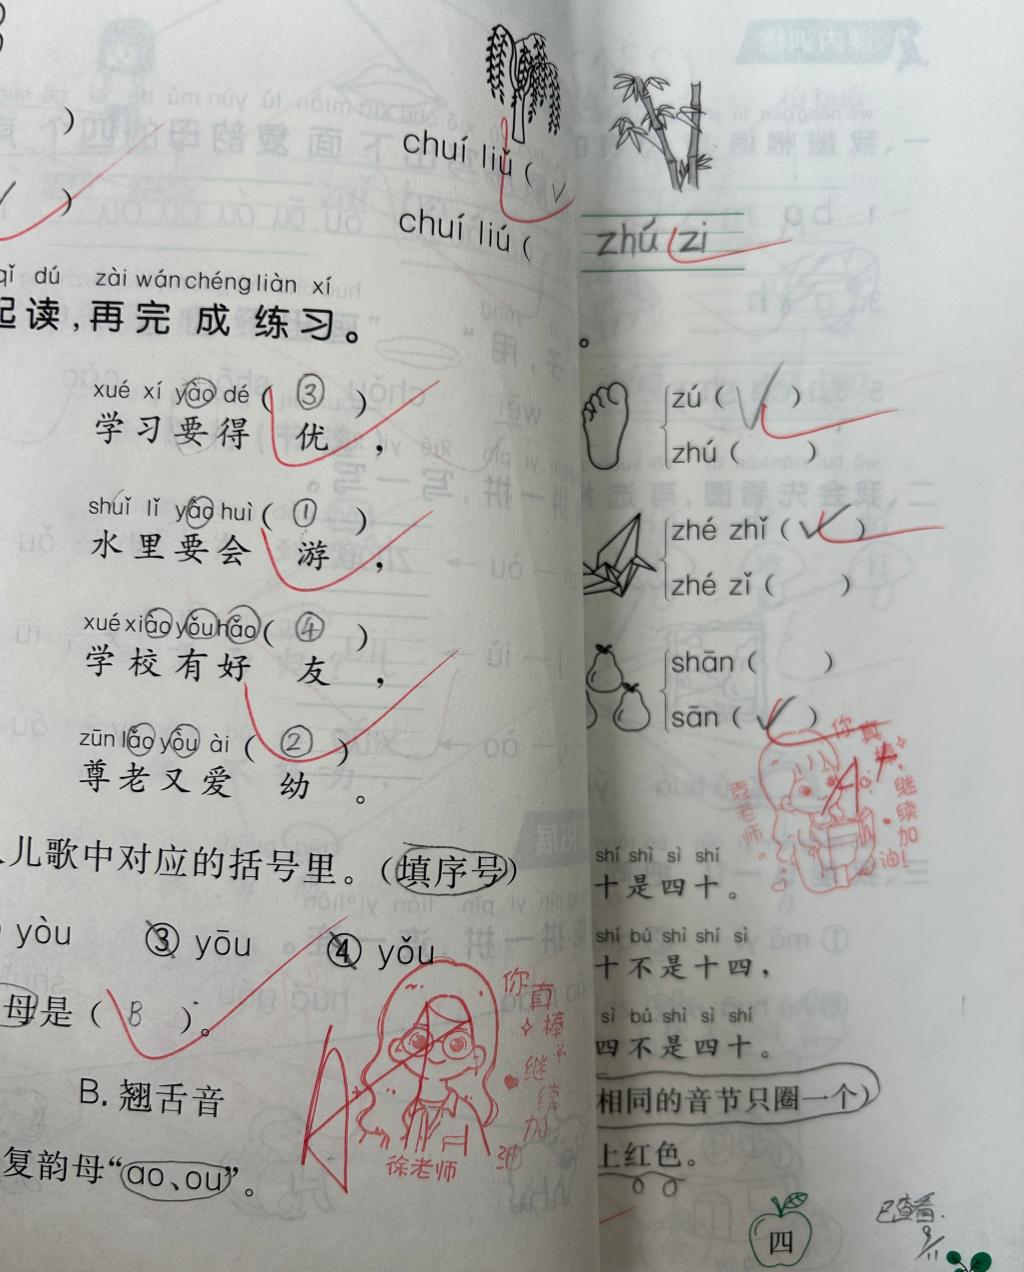 )
chuí liǔ ( √
√ )
chuí liú (
qǐ dú zài wán chéng liàn xí
起读，再完成练习。
xué xí yào dé ( ③ )
学习要得优，
shuǐ lǐ yǎo huì ( ① )
水里要会游，
xué xiào yǒu hǎo ( ④ )
学校有好友，
zūn lǎo yòu ài ( ② )
尊老又爱幼。
儿歌中对应的括号里。（填序号）
yòu ③ yōu ④ yǒu
母是（ B ）。
B. 翘舌音
复韵母“ao、ou”。
你真棒
继续加油
徐老师
zhú zi
。
zú ( √ )
zhú ( )
zhé zhǐ ( √ )
zhé zǐ ( )
shān ( )
sān ( √ )
你真棒，继续加油！
袁老师。
shí shì sì shí
十是四十。
shí bú shì shí sì
十不是十四，
sì bú shì sì shí
四不是四十。
相同的音节只圈一个）
上红色。
四
已查看.
9/11